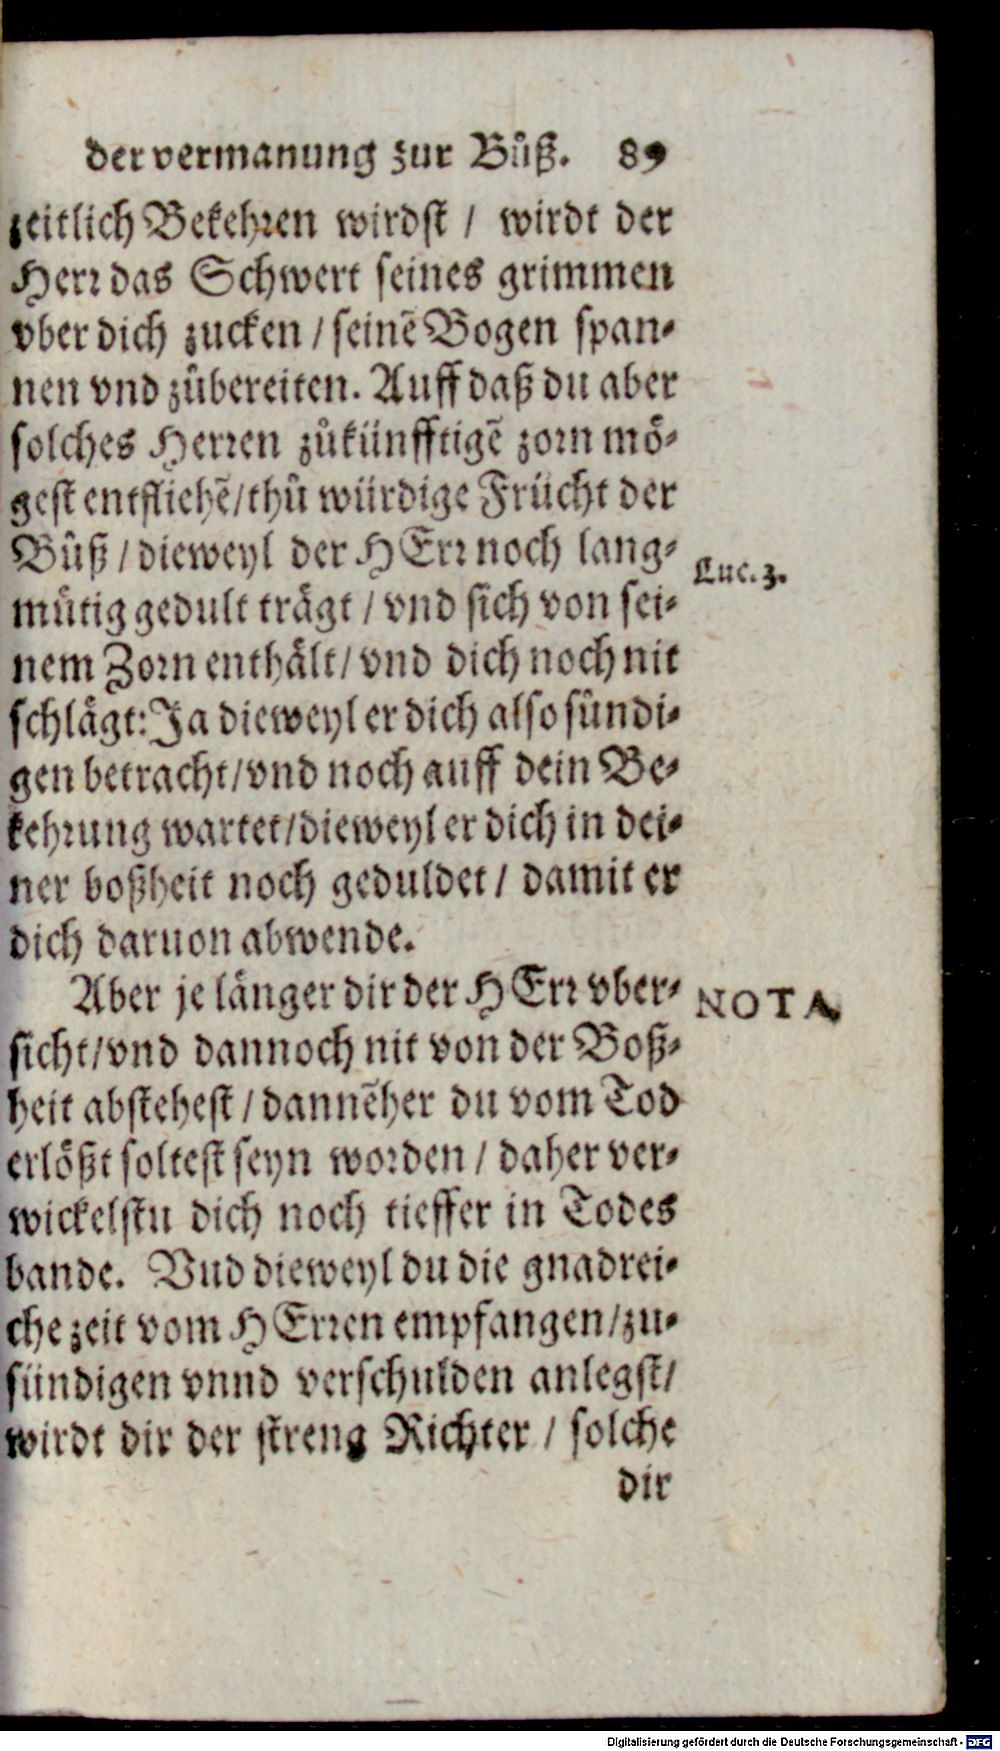 der vermanung zur Bůß. 89
zeitlich Bekehren wirdst / wirdt der
Herr das Schwert seines grimmen
vber dich zucken / seinē Bogen span-
nen vnd zůbereiten. Auff daß du aber
solches Herren zůkünfftigē zorn mö-
gest entfliehē/thů würdige Frücht der
Bůß / dieweyl der HErr noch lang-
Luc. 3.
můtig gedult trägt / vnd sich von sei-
nem Zorn enthält/ vnd dich noch nit
schlägt: Ja dieweyl er dich also sündi-
gen betracht/vnd noch auff dein Be-
kehrung wartet/dieweyl er dich in dei-
ner boßheit noch geduldet / damit er
dich daruon abwende.
Aber je länger dir der HErr vber-
NOTA.
sicht/vnd dannoch nit von der Boß-
heit abstehest / dannēher du vom Tod
erlößt soltest seyn worden / daher ver-
wickelstu dich noch tieffer in Todes
bande. Vnd dieweyl du die gnadrei-
che zeit vom HErren empfangen/zu-
sündigen vnnd verschulden anlegst/
wirdt dir der streng Richter / solche
dir
Digitalisierung gefördert durch die Deutsche Forschungsgemeinschaft - DFG